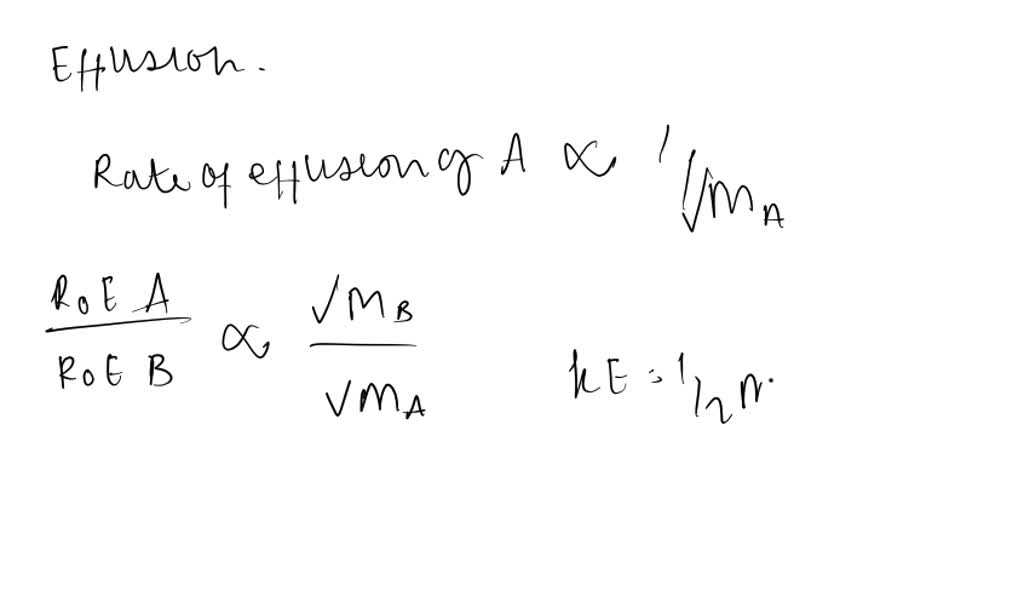 Effusion.
Rate of effusion of A ∝ 1/√M_A
RoE A / RoE B ∝ √M_B / √M_A
KE = 1/2 m